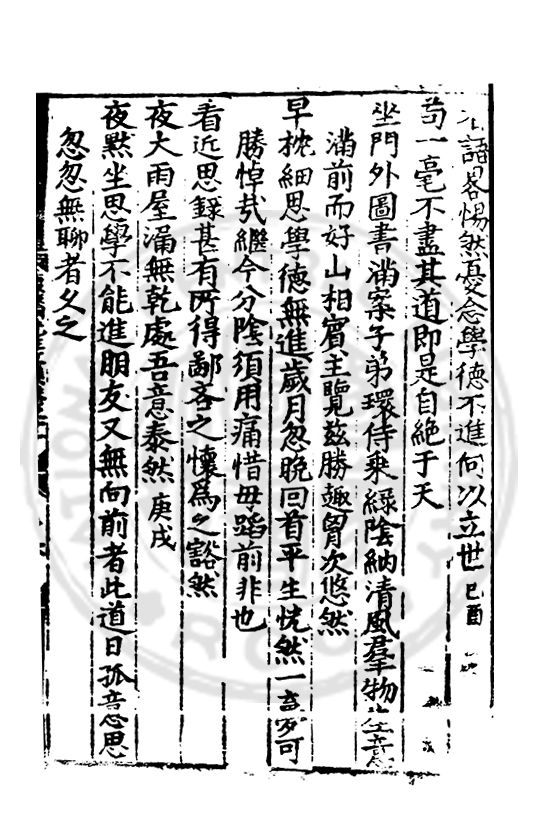 語畧惕然憂念學德不進何以立世己酉
苟一毫不盡其道即是自絕于天
坐門外圖書滿案子弟環侍乘綠陰納清風羣物生意
滿前而好山相賓主覽茲勝趣胷次悠然
早枕細思學德無進歲月忽晩回首平生恍然一夢可
勝悼㢤繼今分陰須用痛惜毋蹈前非也
看近思録甚有所得鄙吝之懷爲之豁然
夜大雨屋漏無乾處吾意泰然庚戌
夜默坐思學不能進朋友又無向前者此道日孤意思
忽忽無聊者久之